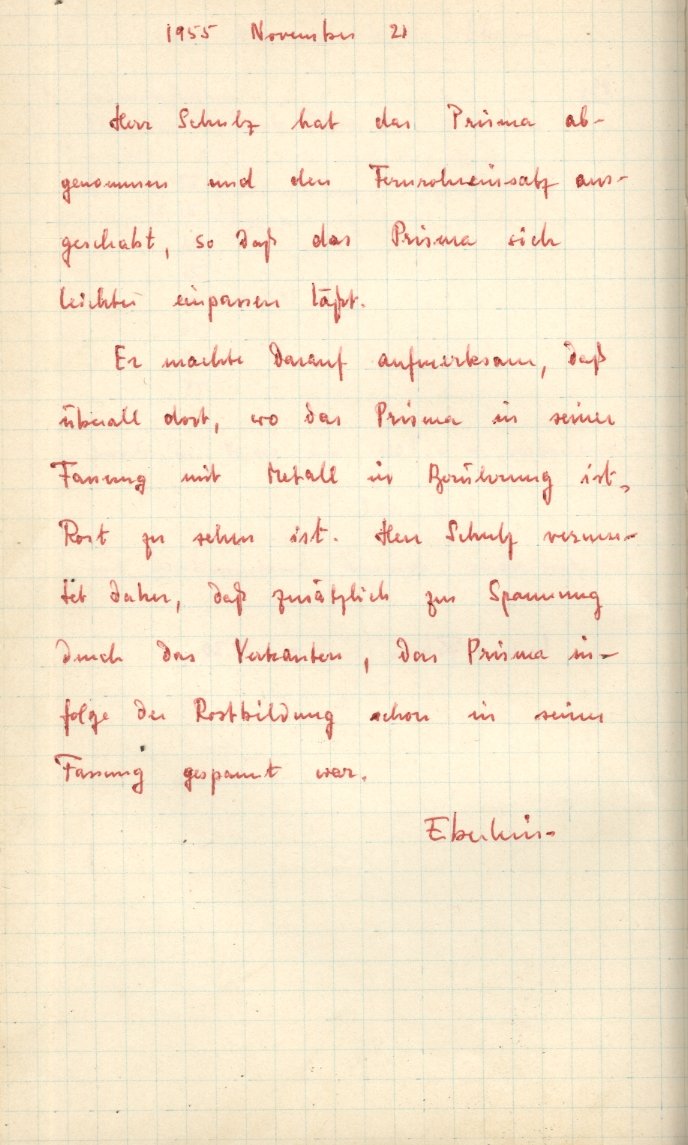 1955 November 21
Herr Schulz hat das Prisma ab-
genommen und den Fernrohreinsatz aus-
geschabt, so daß das Prisma sich
leichter einpassen läßt.
Er machte darauf aufmerksam, daß
überall dort, wo das Prisma in seiner
Fassung mit Metall in Berührung ist,
Rost zu sehen ist. Herr Schulz vermu-
tet daher, daß zusätzlich zur Spannung
durch das Verkanten, das Prisma in-
folge der Rostbildung schon in seiner
Fassung gespannt war.